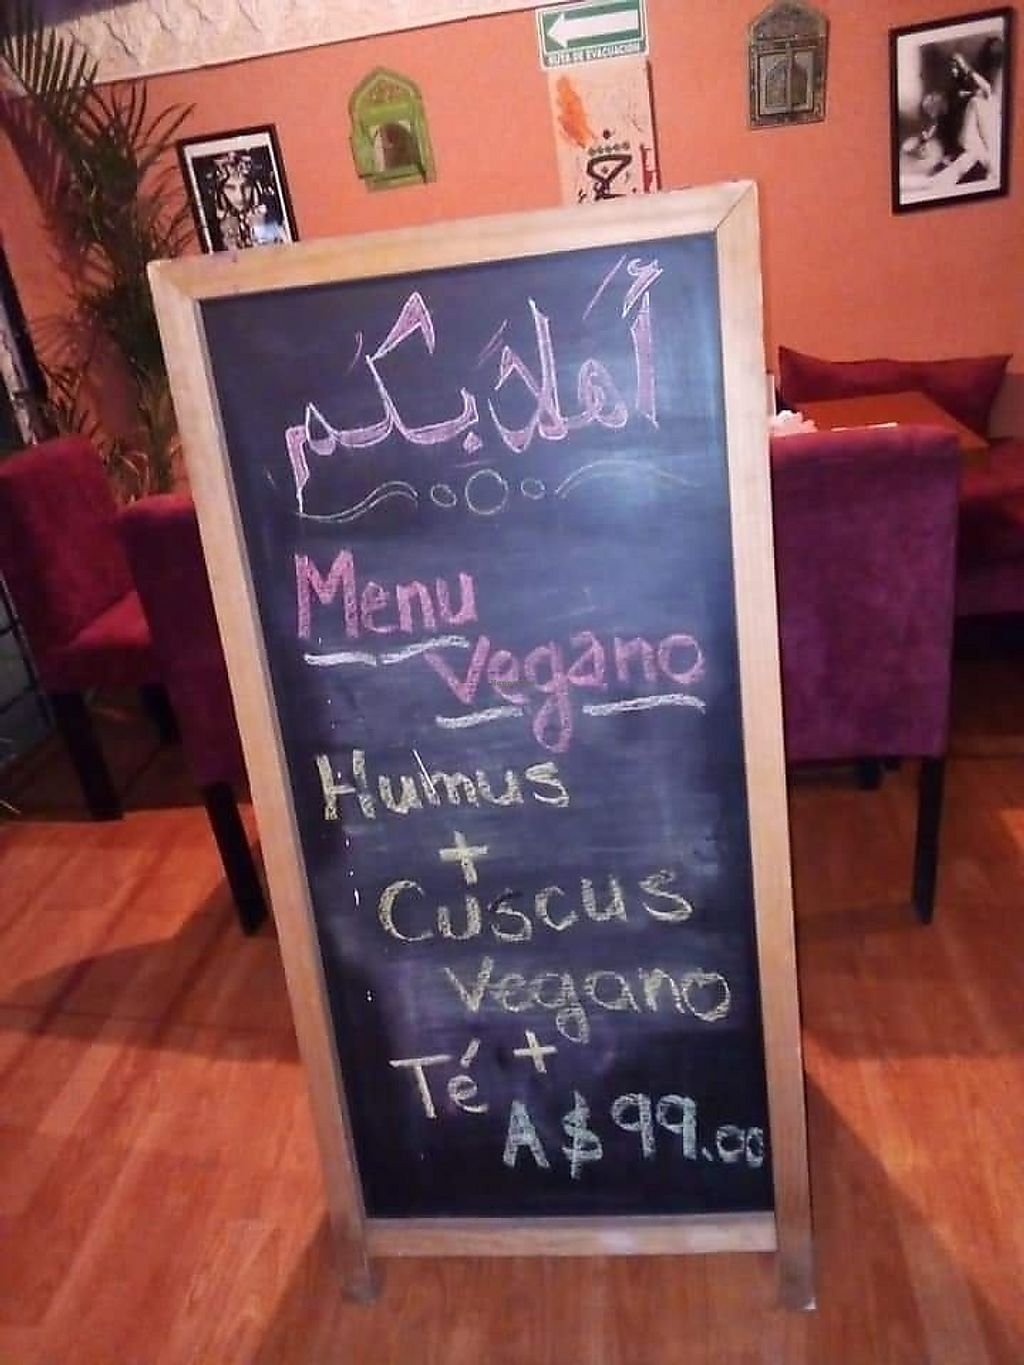 RUTA DE EVACUACIÓN
أهلاً بكم
Menu
Vegano
Humus
+
Cuscus
Vegano
+
Té
A $99.00